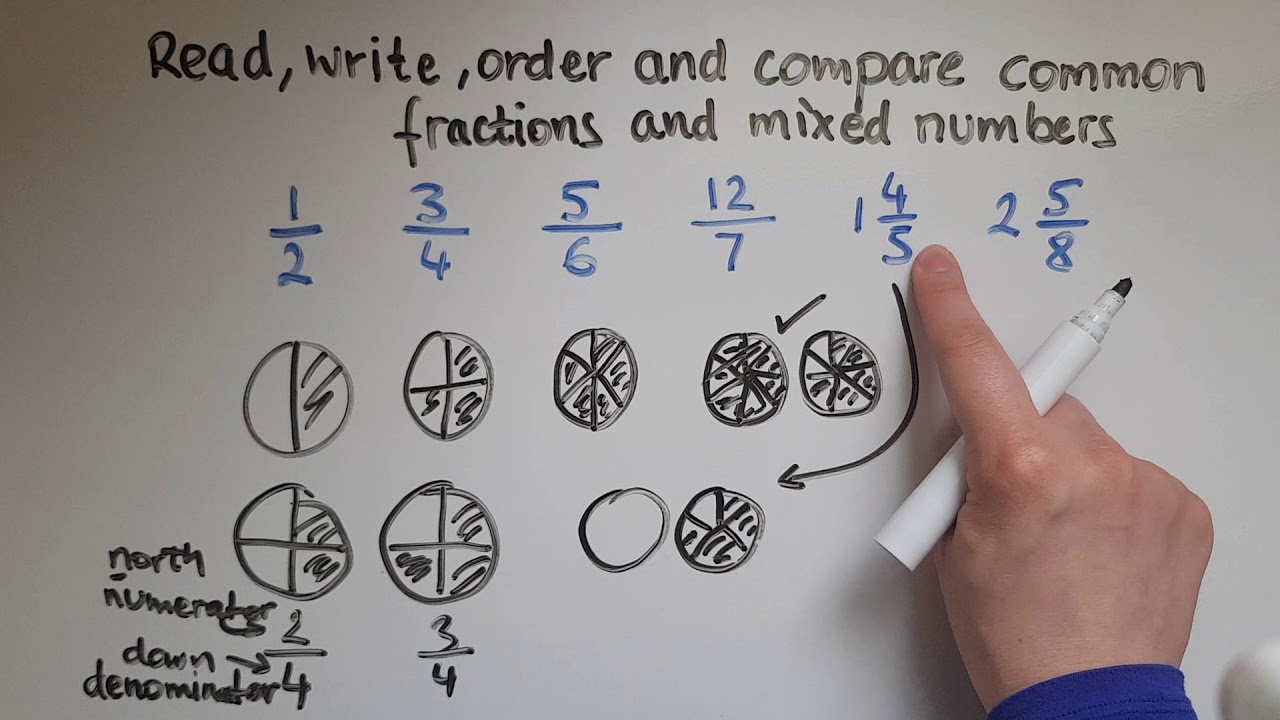 Read, write, order and compare common
fractions and mixed numbers
1/2 3/4 5/6 12/7 1 4/5 2 5/8
north
numerator
2/4 3/4
down
denominator